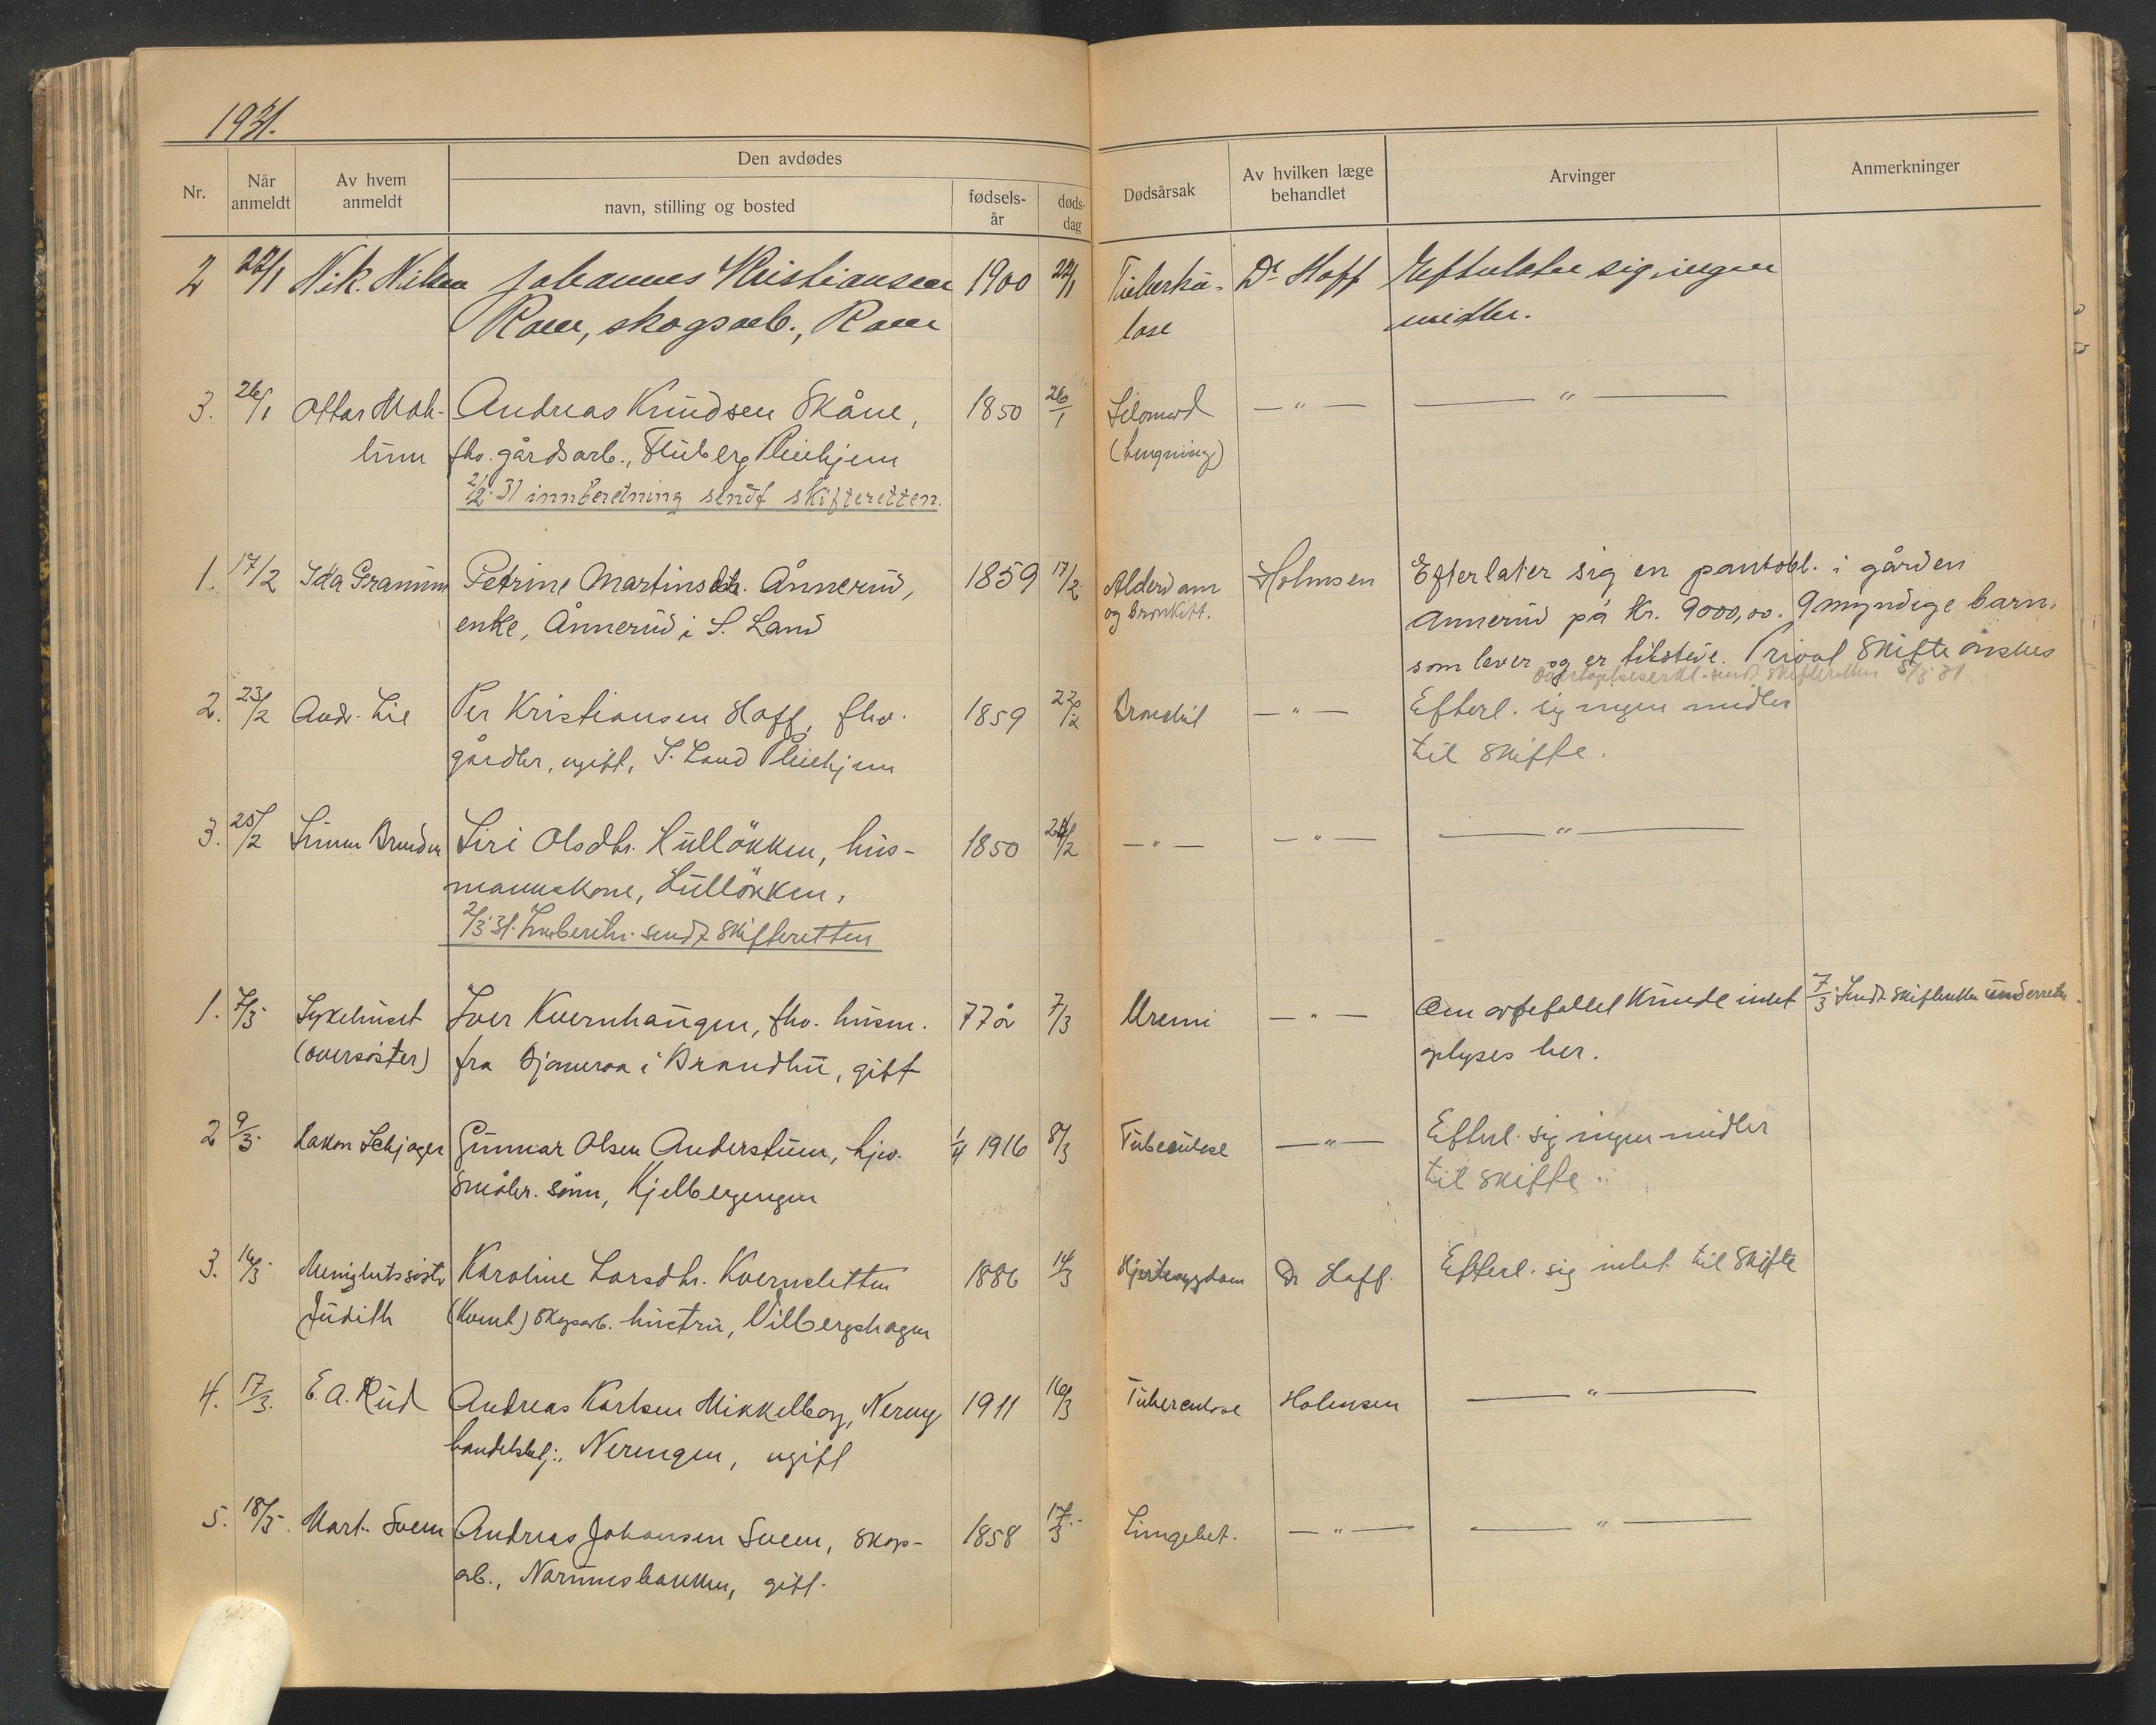 1931.
Den avdødes
Nr.
Når anmeldt
Av hvem anmeldt
navn, stilling og bosted
fødsels-år
døds-dag
Dødsårsak
Av hvilken læge behandlet
Arvinger
Anmerkninger
2 22/1 Nik. Nilsen Johannes Kristiansen 1900 22/1 Tuberku- Dr Hoff Efterlater sig ingen
skogsarb., lose midler.
3. 26/1 Ottar Møh- Andreas Knudsen Skåne, 1850 26/1 Selvmord — " — — " —
linn fhv. gårdsarb., Fluberg Pleiehjem (hengning)
2/2. 31 innberetning sendt skifteretten.
1. 17/2 Ida Granum Petrine Martinsdtr. Ånnerud, 1859 17/2 Alderdom Holmsen Efterlater sig en pantobl. i gården
enke, Ånnerud i S. Land og bronkitt. Ånnerud på Kr. 9000,00. 9 myndige barn
som lever og er tilstede. Privat skifte ønskes
sendt skifteretten 5/3 31.
2. 23/2 Andr. Lie Per Kristiansen Hoff, fhv. 1859 22/2 — " — Efterl. sig ingen midler
gårdbr., ugift, S. Land Pleiehjem til skifte.
3. 25/2 Siri Olsdtr. Hulløkken, hus- 1850 24/2 — " — — " — — " —
mannskone, Hulløkken.
2/3. 31. Innberetn. sendt skifteretten
1. 7/3 Sykehuset Iver Kvernhaugen, fhv. husm. 77 år 7/3 Uremi — " — Om arvefallet kunde intet 7/3. Sendt skifteretten underretn.
(oversøster) fra Bjoneroa i Brandbu, gift oplyses her.
2 9/3. Hakon Schjager Gunnar Olsen Anderstuen, hjv. 1/4 1916 8/3 Tuberculose — " — Efterl. sig ingen midler
småbr. sønn, Kjelbergengen til skifte.
3. 16/3. Menighetssøster Karoline Larsdtr. Kvernsletten 1886 14/3 Hjertesygdom Dr Hoff. Efterl. sig intet til skifte
Judith skogsarb. hustru, Vilbergshagen
4. 17/3. E. A. Rud Andreas Karlsen Mikkelborg, 1911 16/3 Tuberculose Holmsen — " —
handelsbetj., Neringen, ugift
5. 18/3. Mart. Sveen Andreas Johansen Sveen, skogs- 1858 17/3 Lungebet. — " — — " —
arb., gift.